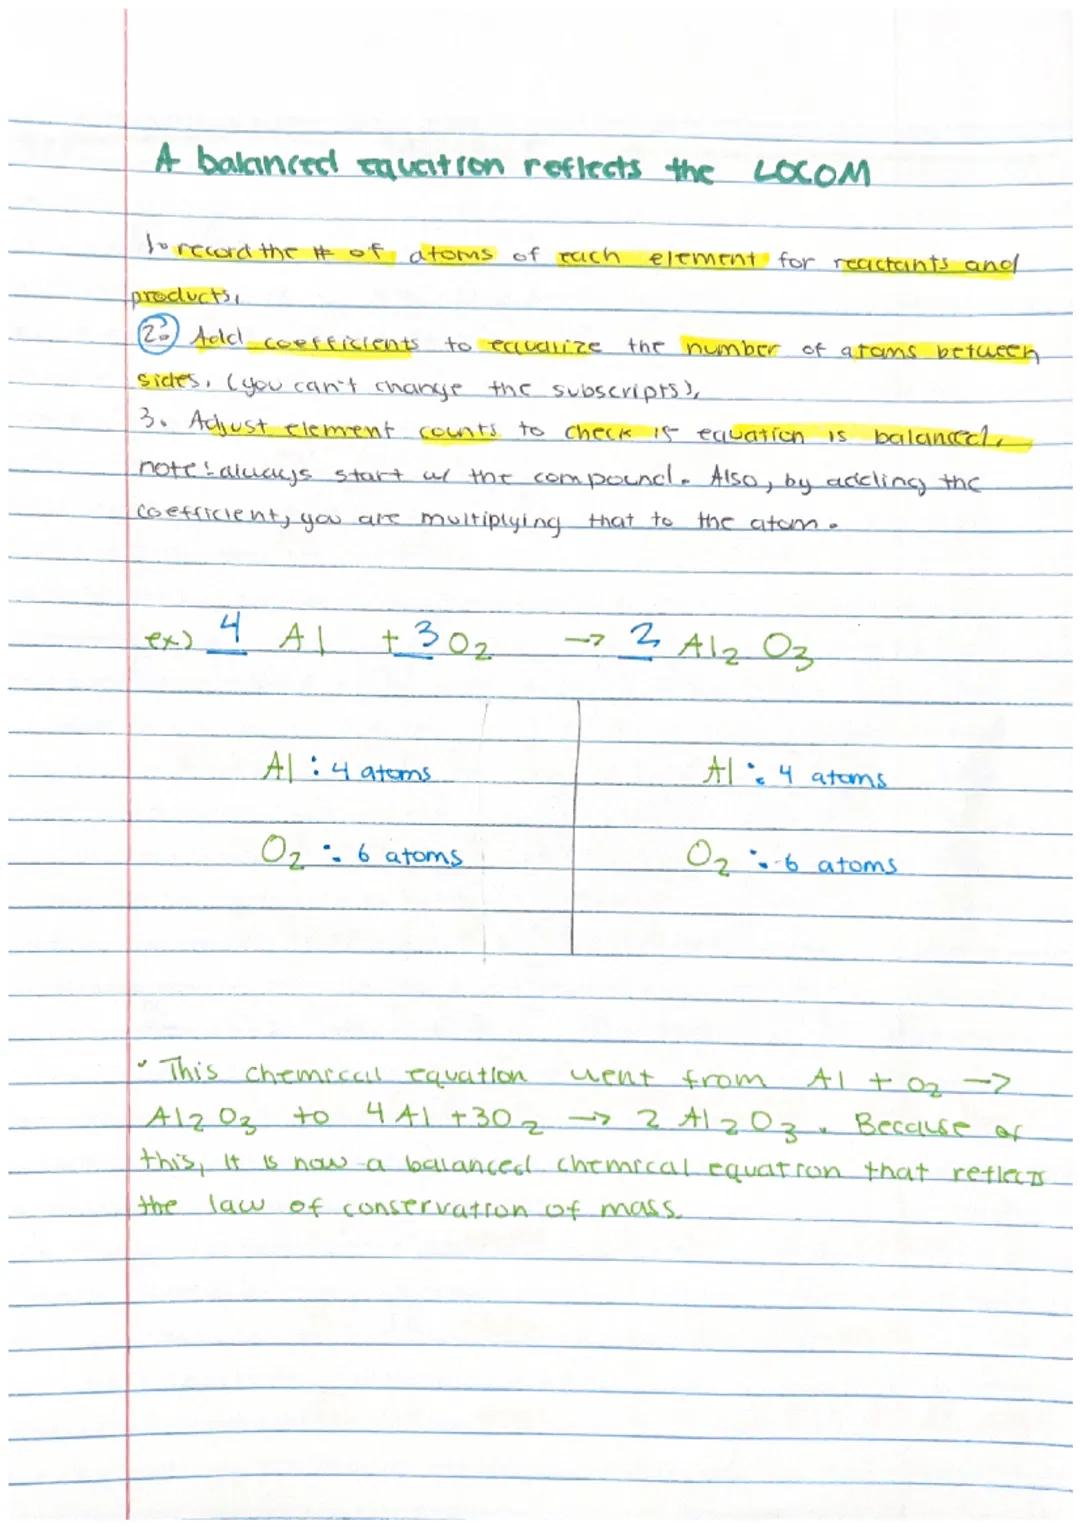 A balanced equation reflects the LOCOM
1. record the # of atoms of each element for reactants and
products.
2. Add coefficients to equalize the number of atoms between
sides. (you can't change the subscripts).
3. Adjust element counts to check if equation is balanced.
note: always start w/ the compound. Also, by adding the
coefficient, you are multiplying that to the atom.
ex) 4 Al + 3 O2 -> 2 Al2 O3
Al : 4 atoms Al : 4 atoms
O2 : 6 atoms O2 : 6 atoms
• This chemical equation went from Al + O2 ->
Al2 O3 to 4 Al + 3O2 -> 2 Al2O3. Because of
this, it is now a balanced chemical equation that reflects
the law of conservation of mass.